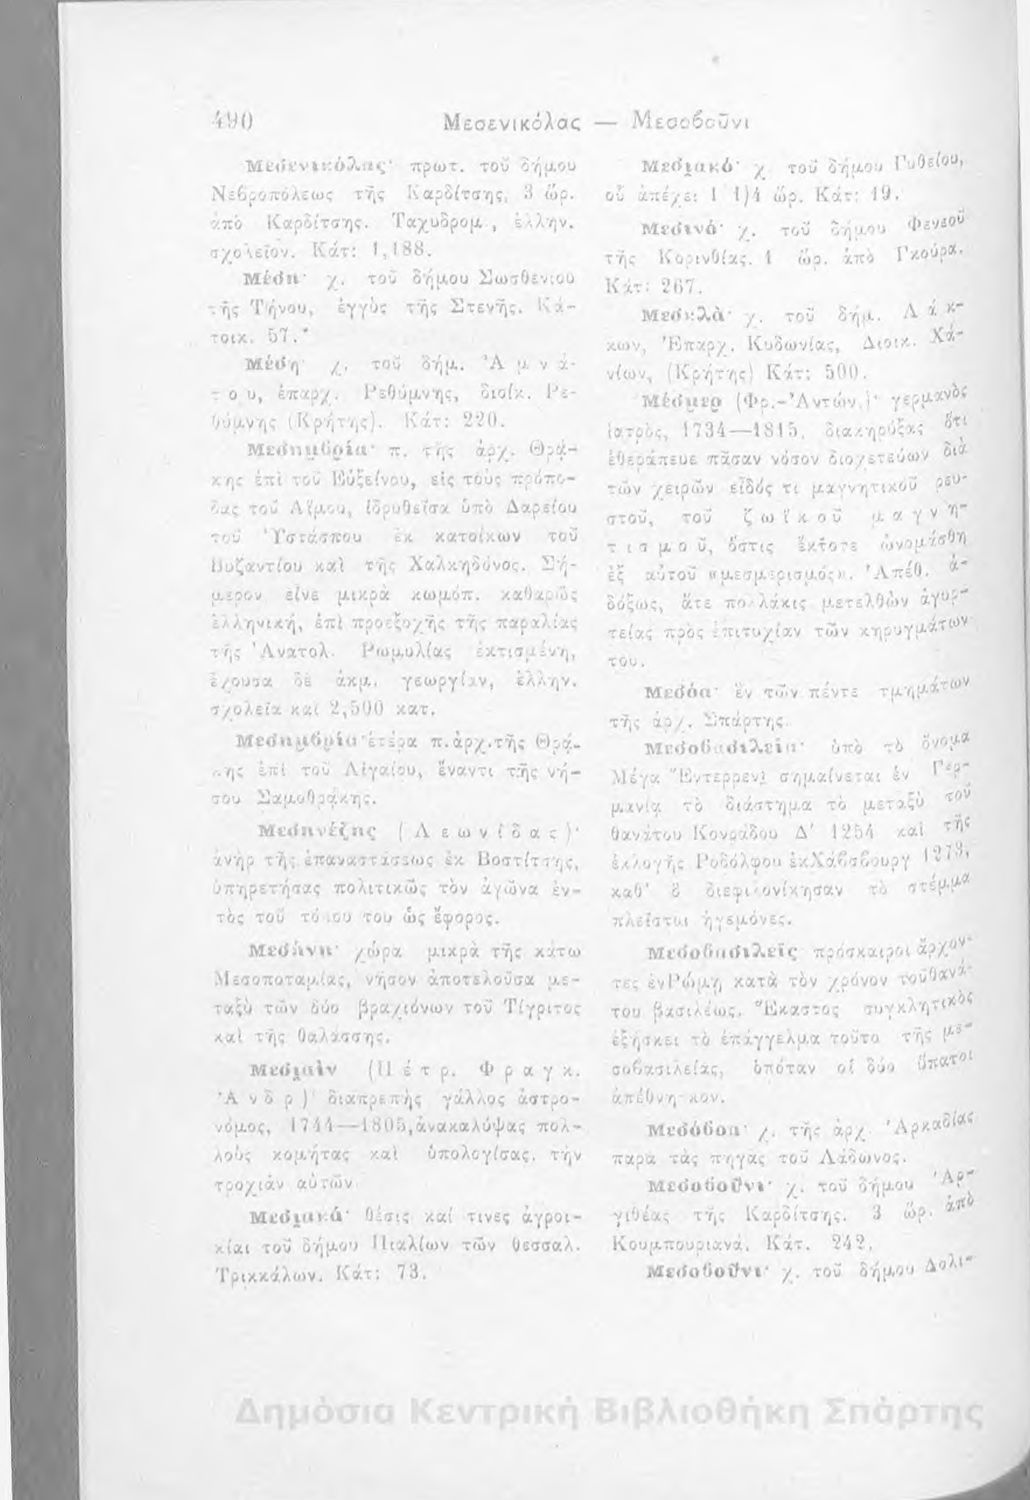 490
Μεσενικόλας — Μεσοβοῦνι
Μεσενικόλας· πρωτ. τοῦ δήμου
Νεβροπόλεως τῆς Καρδίτσης, 3 ὥρ.
ἀπὸ Καρδίτσης. Ταχυδρομ., ἑλλην.
σχολεῖον. Κάτ: 1,188.
Μέση· χ. τοῦ δήμου Σωσθενίου
τῆς Τήνου, ἐγγὺς τῆς Στενῆς. Κά-
τοικ. 57.
Μέση· χ. τοῦ δήμ. Ἀμνά-
του, ἐπαρχ. Ρεθύμνης, διοίκ. Ρε-
θύμνης (Κρήτης). Κάτ: 220.
Μεσημβρία· π. τῆς ἀρχ. Θρά-
κης ἐπὶ τοῦ Εὐξείνου, εἰς τοὺς πρόπο-
δας τοῦ Αἵμου, ἱδρυθεῖσα ὑπὸ Δαρείου
τοῦ Ὑστάσπου ἐκ κατοίκων τοῦ
Βυζαντίου καὶ τῆς Χαλκηδόνος. Σή-
μερον εἶνε μικρὰ κωμόπ. καθαρῶς
ἑλληνική, ἐπὶ προεξοχῆς τῆς παραλίας
τῆς Ἀνατολ. Ρωμυλίας ἐκτισμένη,
ἔχουσα δὲ ἀκμ. γεωργίαν, ἑλλην.
σχολεῖα καὶ 2,500 κατ.
Μεσημβρία· ἑτέρα π. ἀρχ. τῆς Θρά-
κης ἐπὶ τοῦ Αἰγαίου, ἔναντι τῆς νή-
σου Σαμοθράκης.
Μεσηνέζης (Λεωνίδας)·
ἀνὴρ τῆς ἐπαναστάσεως ἐκ Βοστίτσης,
ὑπηρετήσας πολιτικῶς τὸν ἀγῶνα ἐν-
τὸς τοῦ τόπου του ὡς ἔφορος.
Μεσήνη· χώρα μικρὰ τῆς κάτω
Μεσοποταμίας, νῆσον ἀποτελοῦσα με-
ταξὺ τῶν δύο βραχιόνων τοῦ Τίγριτος
καὶ τῆς θαλάσσης.
Μεσιαὶν (Πέτρ. Φραγκ.
Ἀνδρ)· διαπρεπὴς γάλλος ἀστρο-
νόμος, 1744—1805, ἀνακαλύψας πολ-
λοὺς κομήτας καὶ ὑπολογίσας τὴν
τροχιὰν αὐτῶν.
Μεσιακά· θέσις καί τινες ἀγροι-
κίαι τοῦ δήμου Πιαλίων τῶν θεσσαλ.
Τρικκάλων. Κάτ: 73.
Μεσιακό· χ. τοῦ δήμου Γυθείου,
οὗ ἀπέχει 1 1)4 ὥρ. Κάτ: 19.
Μεσινό· χ. τοῦ δήμου Φενεοῦ
τῆς Κορινθίας. 1 ὥρ. ἀπὸ Γκούρα.
Κάτ: 267.
Μεσκλά· χ. τοῦ δήμ. Λάκ-
κων, Ἐπαρχ. Κυδωνίας, Διοικ. Χα-
νίων, (Κρήτης) Κάτ: 500.
Μέσμερ (Φρ.-Ἀντών.)· γερμανὸς
ἰατρὸς, 1734—1815, διακηρύξας ὅτι
ἐθεράπευε πᾶσαν νόσον διοχετεύων διὰ
τῶν χειρῶν εἶδός τι μαγνητικοῦ ρευ-
στοῦ, τοῦ ζωϊκοῦ μαγνη-
τισμοῦ, ὅστις ἔκτοτε ὠνομάσθη
ἐξ αὐτοῦ «μεσμερισμός». Ἀπέθ. ἀ-
δόξως, ἅτε πολλάκις μετελθὼν ἀγυρ-
τείας πρὸς ἐπιτυχίαν τῶν κηρυγμάτων
του.
Μεσόα· ἓν τῶν πέντε τμημάτων
τῆς ἀρχ. Σπάρτης.
Μεσοβασιλεία· ὑπὸ τὸ ὄνομα
Μέγα Ἴντερρεγν. σημαίνεται ἐν Γερ-
μανίᾳ τὸ διάστημα τὸ μεταξὺ τοῦ
θανάτου Κονράδου Δ' 1254 καὶ τῆς
ἐκλογῆς Ροδόλφου ἐκ Χάβσβουργ 1273,
καθ' ὃ διεφιλονίκησαν τὸ στέμμα
πλεῖστοι ἡγεμόνες.
Μεσοβασιλεῖς· πρόσκαιροι ἄρχον-
τες ἐν Ρώμῃ κατὰ τὸν χρόνον τοῦ θανά-
του βασιλέως. Ἕκαστος συγκλητικὸς
ἐξήσκει τὸ ἐπάγγελμα τοῦτο τῆς με-
σοβασιλείας, ὁπόταν οἱ δύο ὕπατοι
ἀπέθνησκον.
Μεσόβοα· χ. τῆς ἀρχ. Ἀρκαδίας
παρὰ τὰς πηγὰς τοῦ Λάδωνος.
Μεσοβοῦνι· χ. τοῦ δήμου Ἀρ-
γιθέας τῆς Καρδίτσης. 3 ὥρ. ἀπὸ
Κουμπουριανά. Κάτ. 242.
Μεσοβοῦνι· χ. τοῦ δήμου Δολι-
Δημόσια Κεντρική Βιβλιοθήκη Σπάρτης